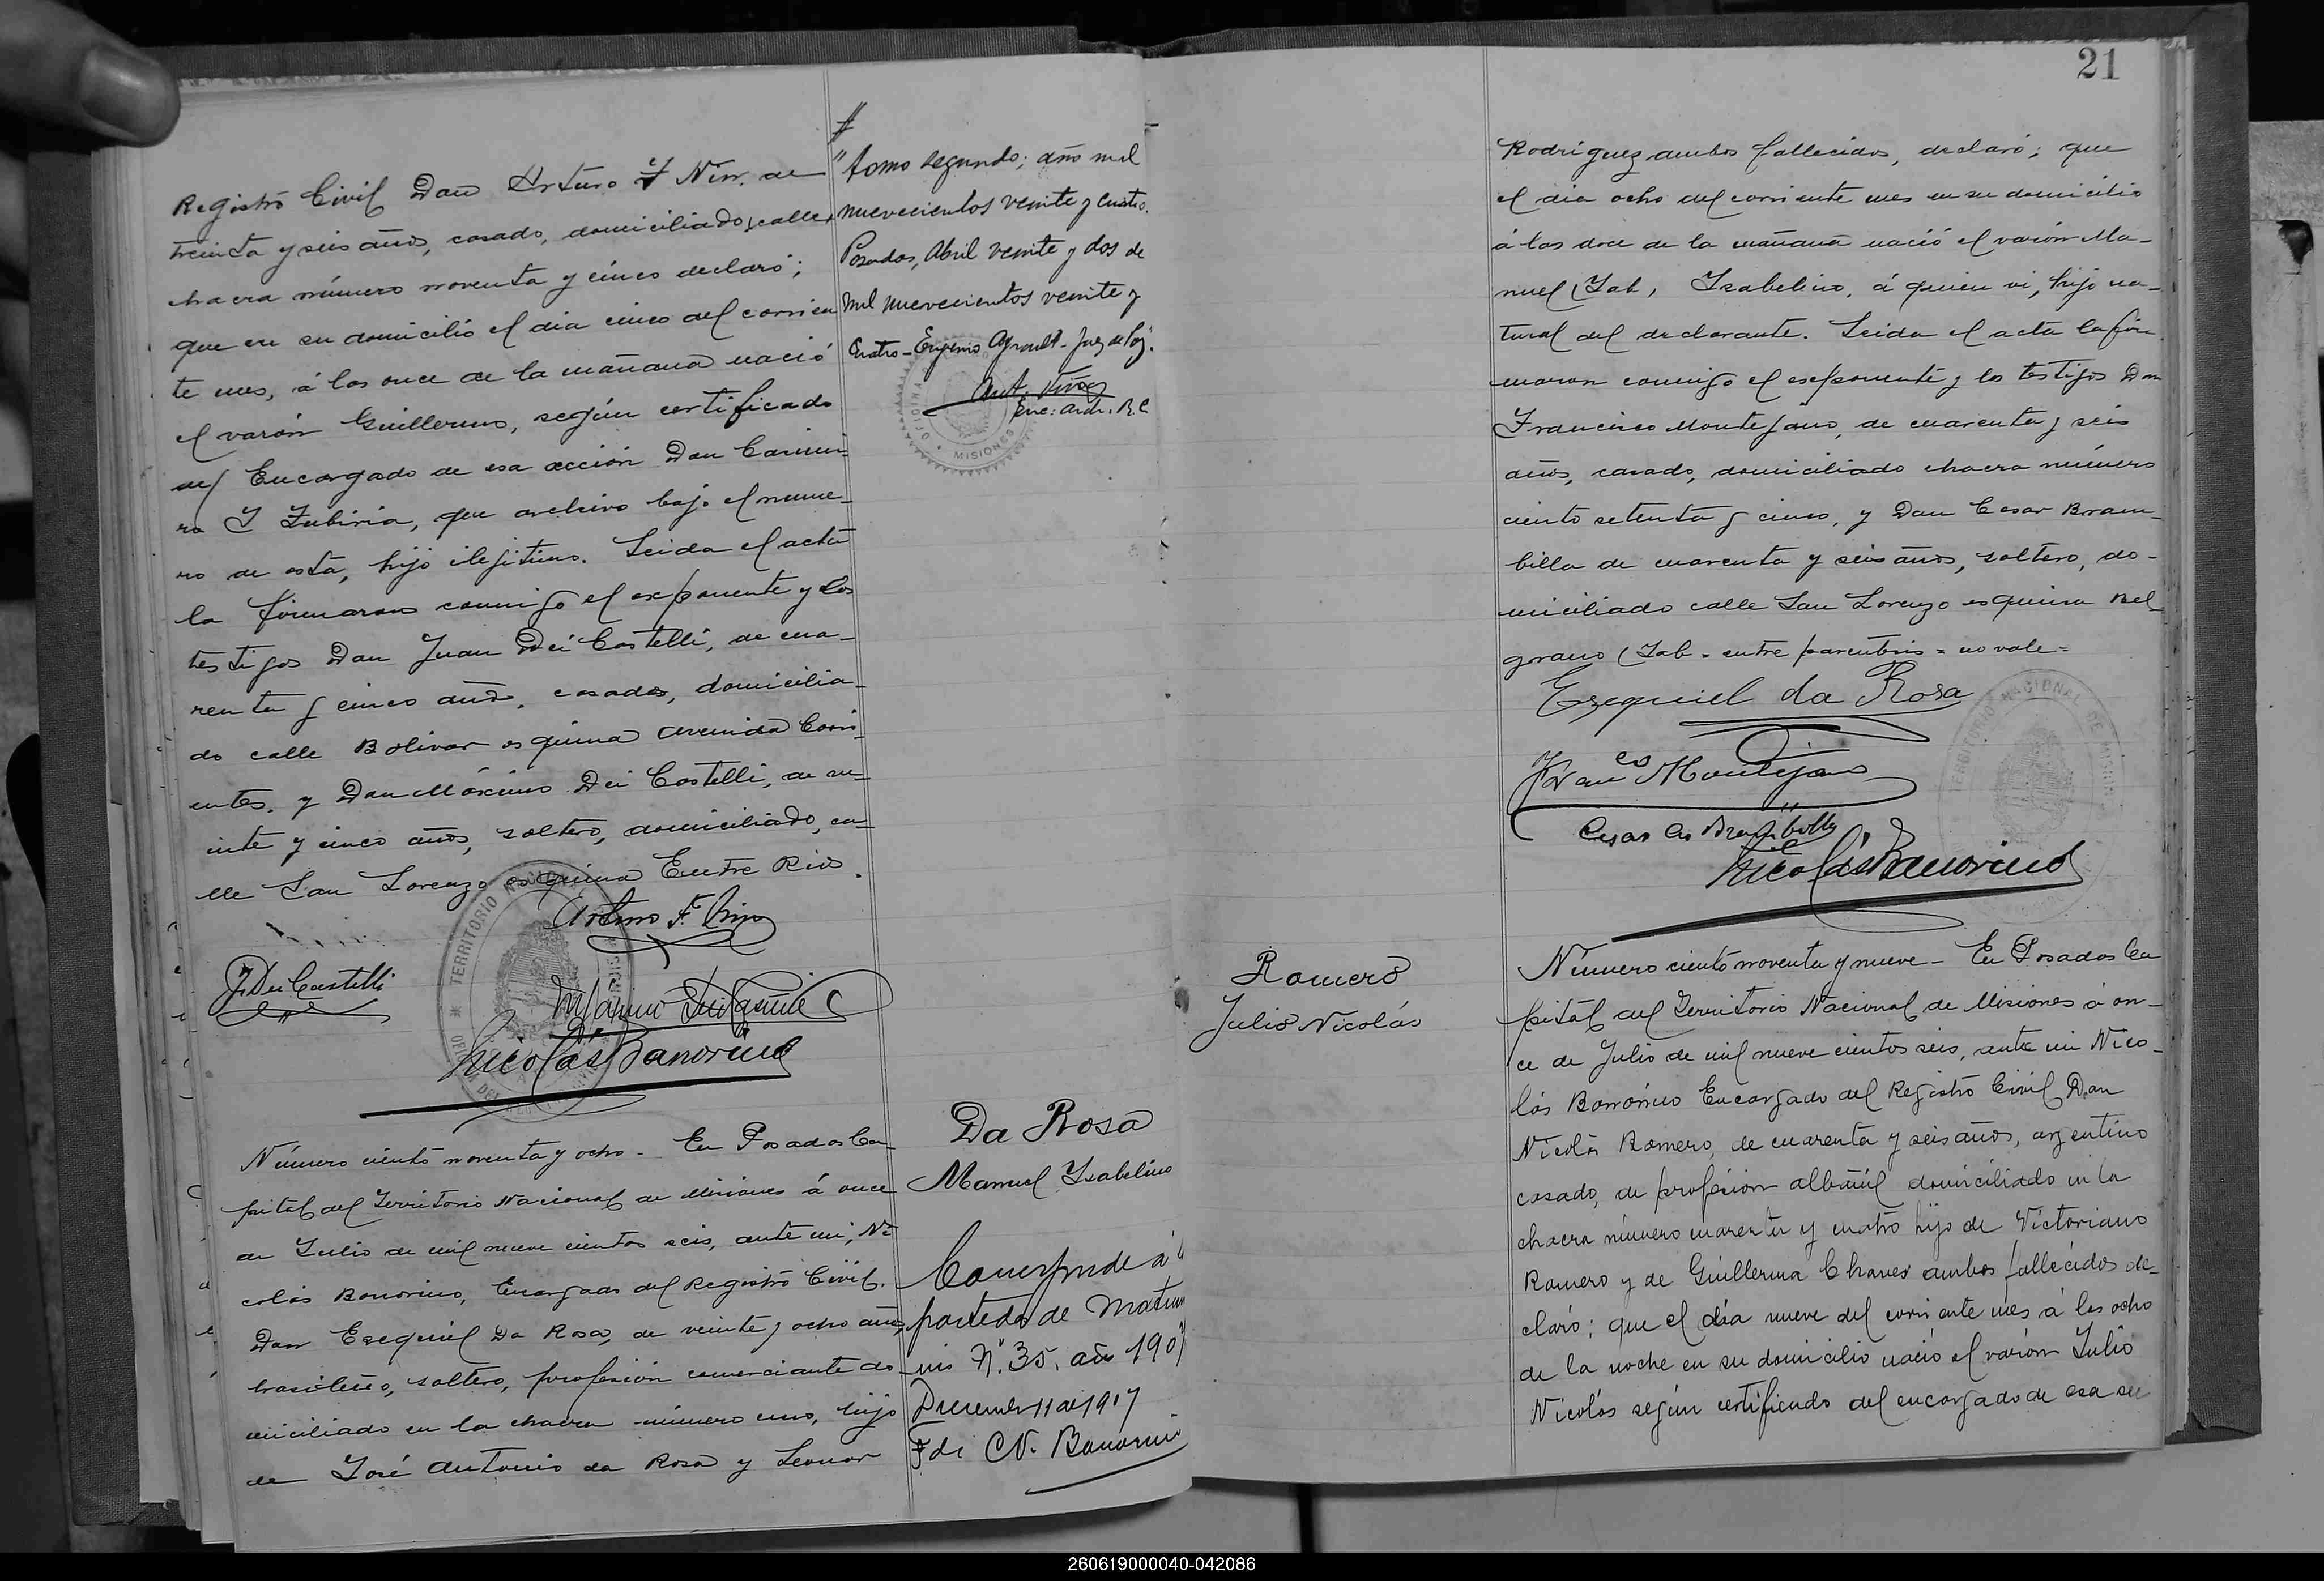 Registro Civil Don Arturo F Nin. de
treinta y seis años, casado, domiciliado, calle,
chacra número noventa y cinco declaró;
que en su domicilio el dia cinco del corrien
te mes, á las once de la mañana nació
el varón Guillermo, según certificado
del Encargado de esa acción Don Casimi-
ro I Zubiria, que archivo bajo el núme-
ro de esta, hijo ilejitimo. Leida el acta
la firmaron conmigo el exponente y los
testigos Don Juan Dei Castelli, de cua-
renta y cinco años, casado, domicilia-
do calle Bolivar esquina Avenida Corri-
entes, y Don Máximo Dei Castelli, de ve-
inte y cinco años, soltero, domiciliado, ca-
lle San Lorenzo esquina Entre Rios.
Arturo F. Nin
J. Dei Castelli
Nicolás Bonorino
TERRITORIO NACIONAL
Número ciento noventa y ocho. - En Posadas Ca-
pital del Territorio Nacional de Misiones á once
de Julio de mil nueve cientos seis, ante mi, Ni
colás Bonorino, Encargado del Registro Civil.
Don Esequiel Da Rosa, de veinte y ocho años,
brasileño, soltero, profesión comerciante do-
miciliado en la chacra número uno, hijo
de José Antonio da Rosa y Leonor
" tomo segundo; año mil
nuevecientos veinte y cuatro.
Posadas, Abril veinte y dos de
mil nuevecientos veinte y
cuatro - Eugenio - Juez de Paz.
Enc: Arch. R. C
OFICINA
MISIONES
Da Rosa
Manuel Ysabelino
Corresponde á
partida de Matrim
nio N° 35. año 190
Diciembre 11 de 1917
F de C N. Bonorino
21
Rodriguez ambos fallecidos, declaró; que
el dia ocho del corriente mes en su domicilio
á las doce de la mañana nació el varón Ma-
nuel (Isab, Isabelino, á quien vi, hijo na-
tural del declarante. Leida el acta la fir
maron conmigo el exponente y los testigos Don
Francisco Montejano, de cuarenta y seis
años, casado, domiciliado chacra número
ciento setenta y cinco, y Don Cesar Bram-
billa de cuarenta y seis años, soltero, do-
miciliado calle San Lorenzo esquina Bel-
grano (Isab - entre parentesis = no vale =
Esequiel da Rosa
Franco Montejano
Cesar Brambilla
Nicolás Bonorino
TERRITORIO NACIONAL DE MISIONES
Romero
Julio Nicolás
Número ciento noventa y nueve - En Posadas Ca
pital del Territorio Nacional de Misiones á on-
ce de Julio de mil nueve cientos seis, ante mi Nico-
lás Bonorino Encargado del Registro Civil Don
Nicolás Romero, de cuarenta y seis años, argentino
casado, de profesión albañil domiciliado en la
chacra número cuarenta y cuatro hijo de Victoriano
Romero y de Guillerma Chaves ambos fallecidos de-
claró; que el día nueve del corriente mes á las ocho
de la noche en su domicilio nació el varón Julio
Nicolás según certificado del encargado de esa se
260619000040-042086